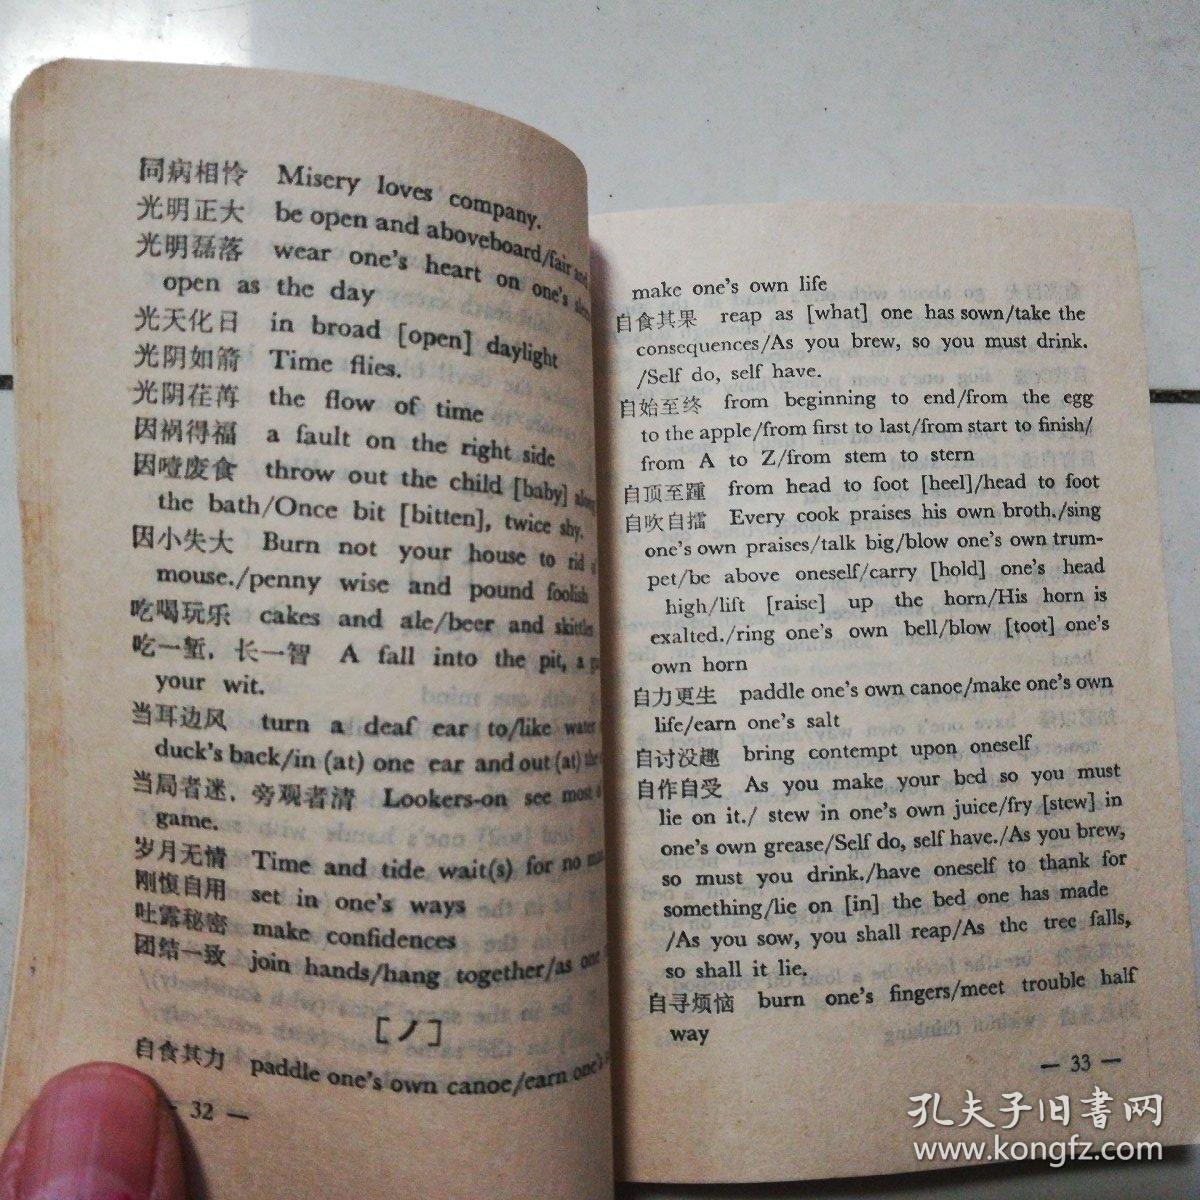 同病相怜 Misery loves company.
光明正大 be open and aboveboard/fair and
光明磊落 wear one's heart on one's
open as the day
光天化日 in broad [open] daylight
光阴如箭 Time flies.
光阴荏苒 the flow of time
因祸得福 a fault on the right side
因噎废食 throw out the child [baby] along
the bath/Once bit [bitten], twice shy.
因小失大 Burn not your house to rid
mouse./penny wise and pound foolish
吃喝玩乐 cakes and ale/beer and skittles
吃一堑，长一智 A fall into the pit, a
your wit.
当耳边风 turn a deaf ear to/like water
duck's back/in (at) one ear and out (at) the
当局者迷，旁观者清 Lookers-on see most
game.
岁月无情 Time and tide wait(s) for no
刚愎自用 set in one's ways
吐露秘密 make confidences
团结一致 join hands/hang together/as one
[ノ]
自食其力 paddle one's own canoe/earn one's
— 32 —
make one's own life
自食其果 reap as [what] one has sown/take the
consequences/As you brew, so you must drink.
/Self do, self have.
自始至终 from beginning to end/from the egg
to the apple/from first to last/from start to finish/
from A to Z/from stem to stern
自顶至踵 from head to foot [heel]/head to foot
自吹自擂 Every cook praises his own broth./sing
one's own praises/talk big/blow one's own trum-
pet/be above oneself/carry [hold] one's head
high/lift [raise] up the horn/His horn is
exalted./ring one's own bell/blow [toot] one's
own horn
自力更生 paddle one's own canoe/make one's own
life/earn one's salt
自讨没趣 bring contempt upon oneself
自作自受 As you make your bed so you must
lie on it./ stew in one's own juice/fry [stew] in
one's own grease/Self do, self have./As you brew,
so must you drink./have oneself to thank for
something/lie on [in] the bed one has made
/As you sow, you shall reap/As the tree falls,
so shall it lie.
自寻烦恼 burn one's fingers/meet trouble half
way
— 33 —
孔夫子旧书网
www.kongfz.com